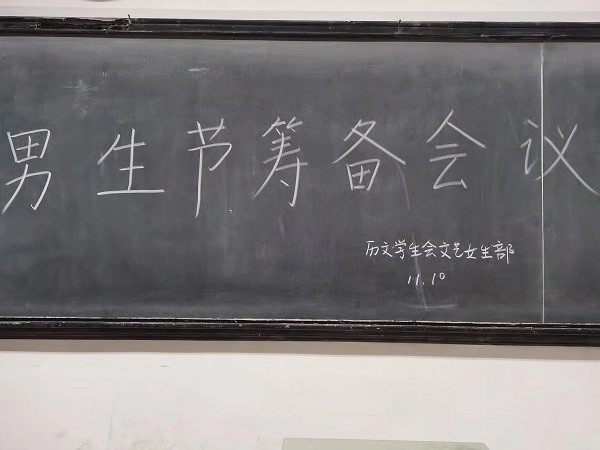 男生节筹备会议
历文学生会文艺女生部
11.10